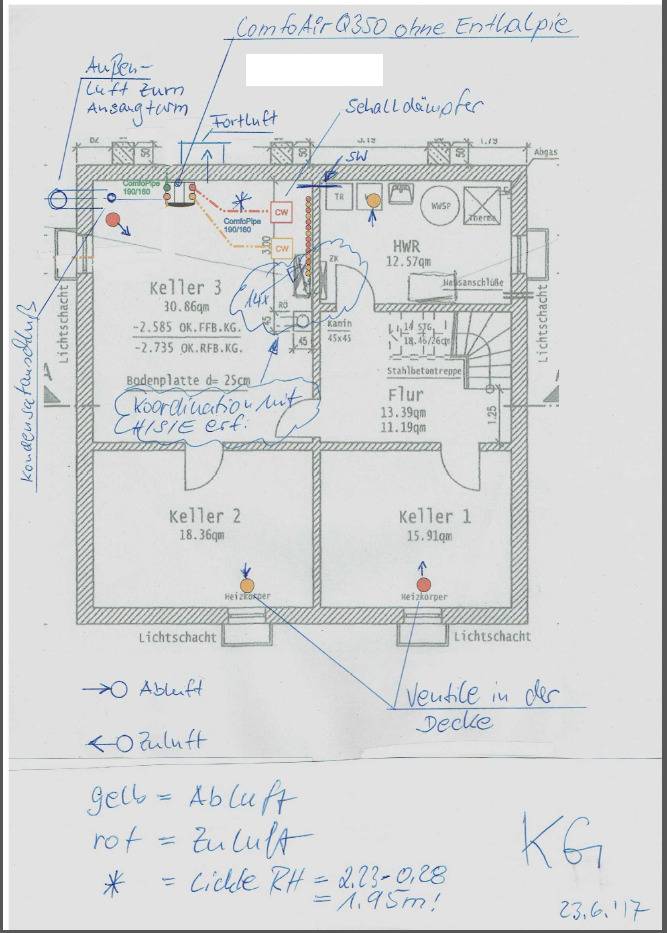 ComfoAir Q350 ohne Enthalpie
Außen-
luft zum
Ansaugturm
Fortluft
Schalldämpfer
SW
82
50
50
3.19
50
1.79
Abgas
ComfoPipe
190/160
ComfoPipe
190/160
CW
CW
3.00
TR
WWSP
Therme
HWR
12.57qm
ZK
Hausanschlüße
14x
RÖ
45
45
Kamin
45x45
Keller 3
30.86qm
-2.585 OK.FFB.KG.
-2.735 OK.RFB.KG.
Bodenplatte d= 25cm
Koordination mit
H/S/E erf.
14 STG
18.46/26cm
Stahlbetontreppe
Flur
13.39qm
11.19qm
1.25
Lichtschacht
Lichtschacht
Kondensatanschluß
Keller 2
18.36qm
Keller 1
15.91qm
Heizkörper
Heizkörper
Lichtschacht
Lichtschacht
Abluft
Zuluft
Ventile in der
Decke
gelb = Abluft
rot = Zuluft
* = Lichte RH = 2.23-0.28
= 1.95m!
KG
23.6.'17